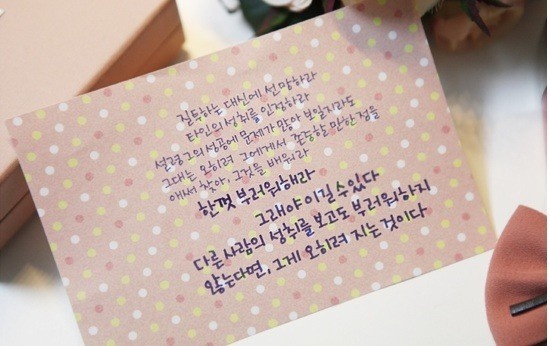 질투하는 대신에 선망하라
타인의 성취를 인정하라
설령 그의 성공에 문제가 많아 보일지라도
그대는 오히려 그에게서, 존중할 만한 점들
애써 찾아, 그것을 배워라
한껏 부러워해라
그래야 이길 수 있다
다른 사람의 성취를 보고도 부러워하지
않는다면, 그게 오히려 지는 것이다